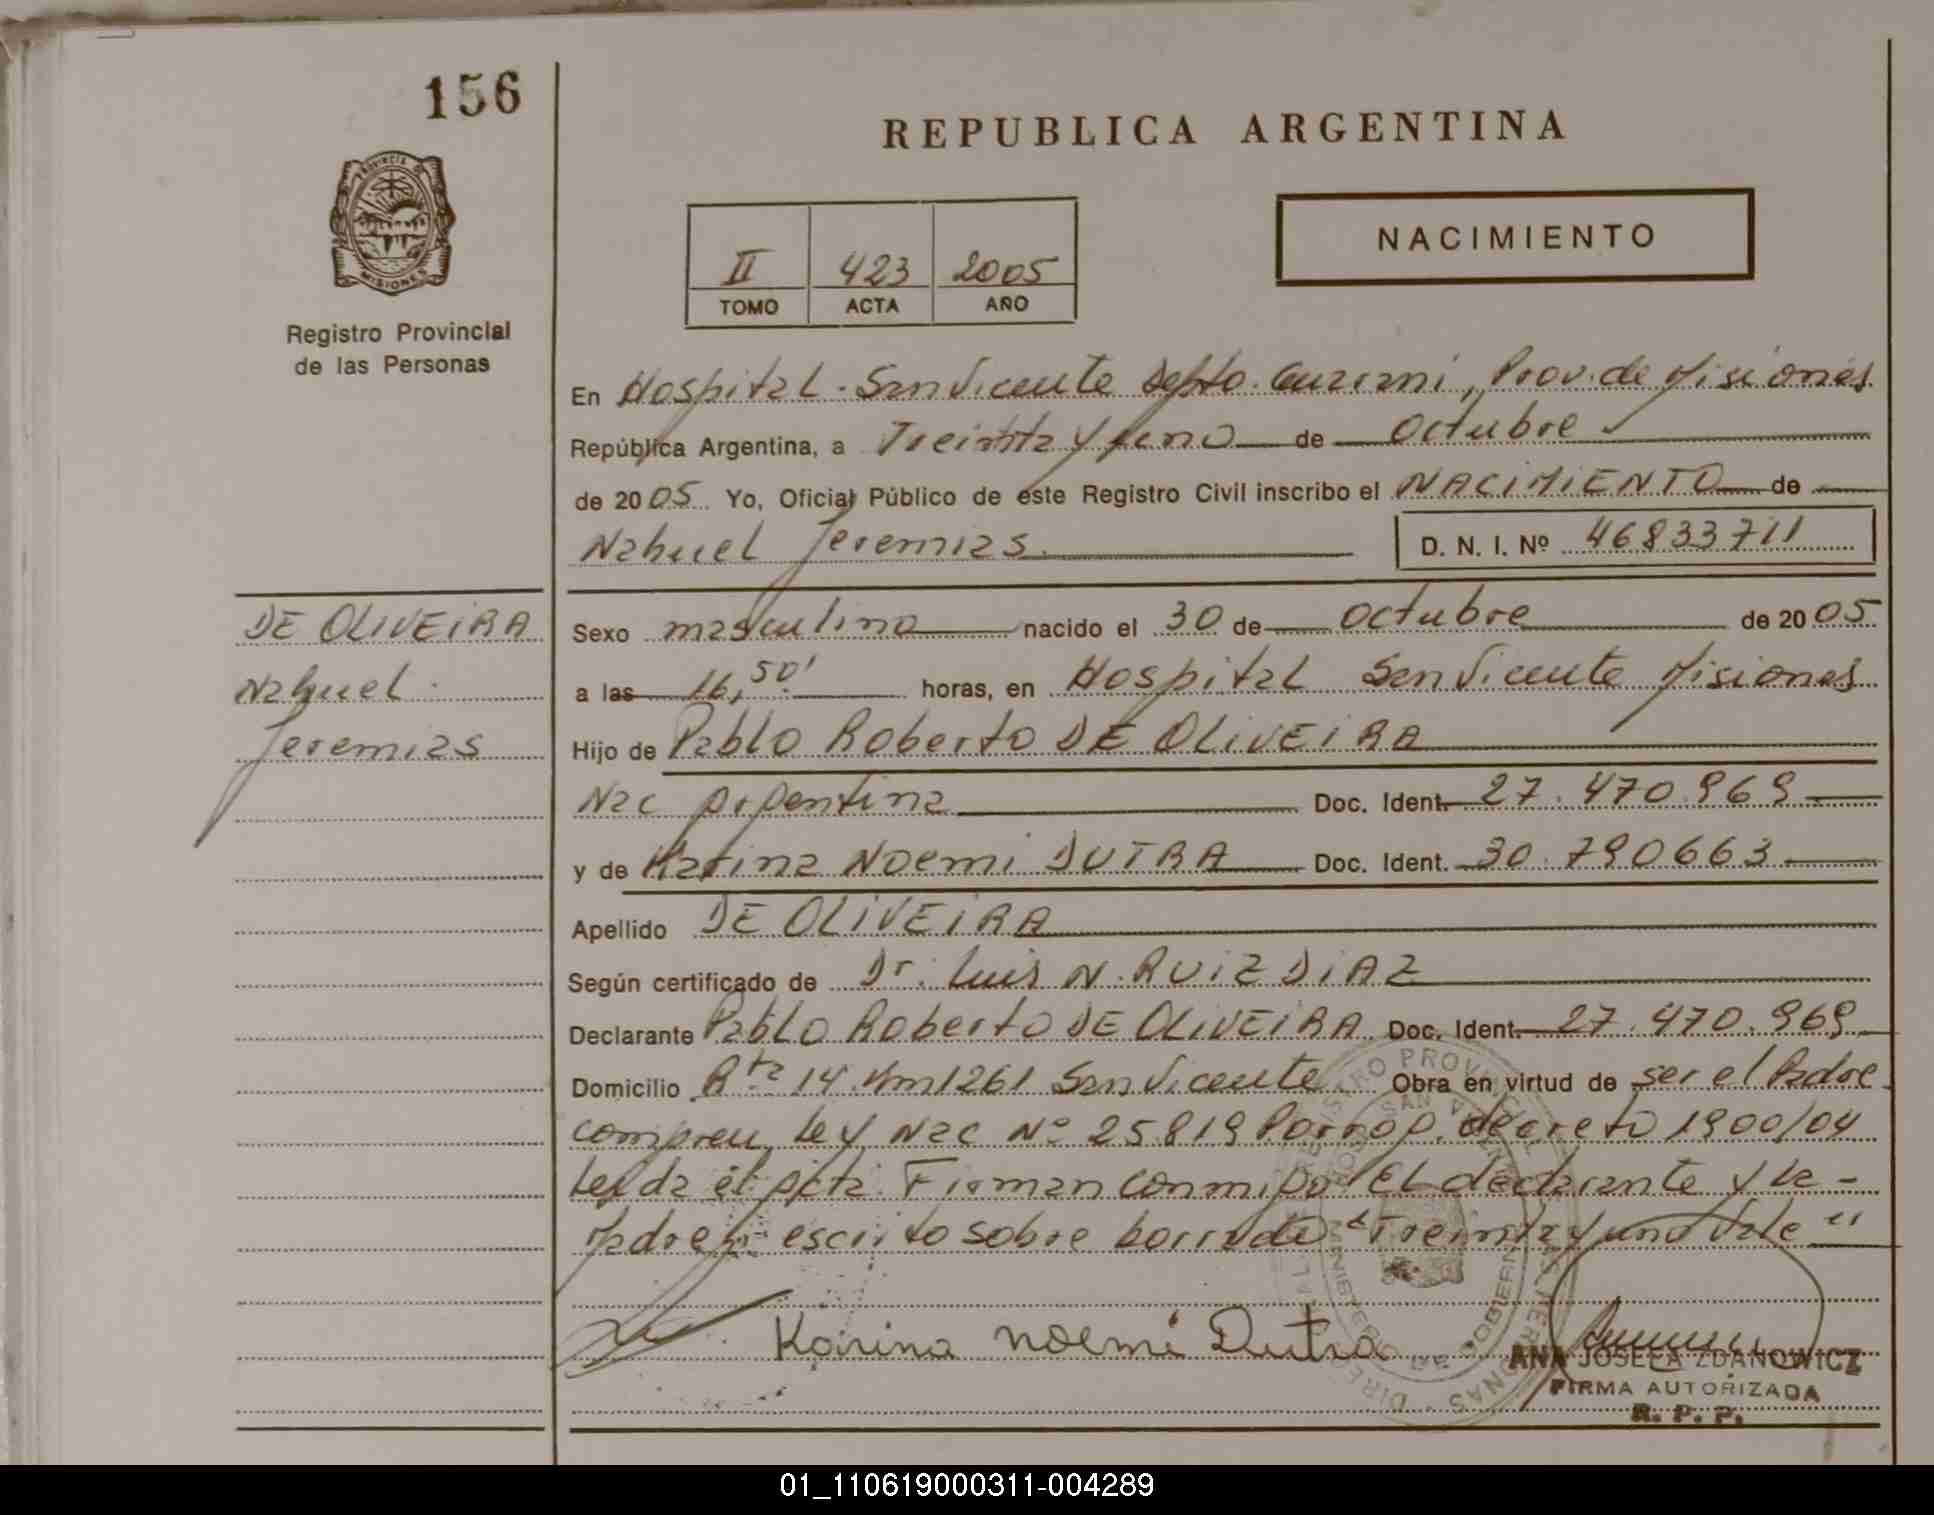 156
REPUBLICA ARGENTINA
PROVINCIA DE
MISIONES
Registro Provincial
de las Personas
NACIMIENTO
II 423 2005
TOMO ACTA AÑO
En Hospital - San Vicente Depto. Guaraní, Prov. de Misiones
República Argentina, a Treinta y uno de octubre
de 2005 Yo, Oficial Público de este Registro Civil inscribo el NACIMIENTO de
Nahuel Jeremias D. N. I. Nº 46833711
DE OLIVEIRA
Nahuel
Jeremias
Sexo masculino nacido el 30 de octubre de 2005
a las 16,50' horas, en Hospital San Vicente Misiones
Hijo de Pablo Roberto DE OLIVEIRA
Nac argentina Doc. Ident. 27.470.969
y de Karina Noemi DUTRA Doc. Ident. 30.790663
Apellido DE OLIVEIRA
Según certificado de Dr. Luis N. RUIZ DIAZ
Declarante Pablo Roberto DE OLIVEIRA Doc. Ident. 27.470.969
Domicilio Rta 14 Km 1261 San Vicente Obra en virtud de ser el Padre
Ley Nac Nº 25819 decreto 1900/04
Leída el acta. Firman conmigo el declarante y la -
Madre escrito sobre borrado "Treinta y uno Vale"
Karina Noemi Dutra
ANA JOSEFA ZDANOWICZ
FIRMA AUTORIZADA
R. P. P.
01_110619000311-004289